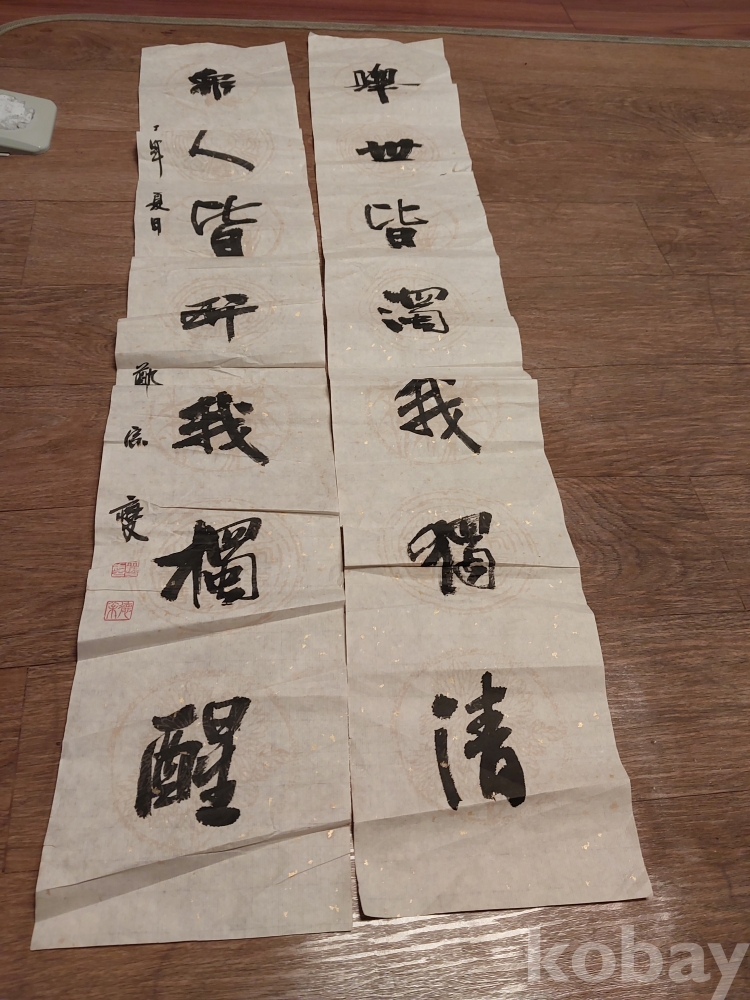 舉世皆濁我獨清
衆人皆醉我獨醒
夏日
kobay